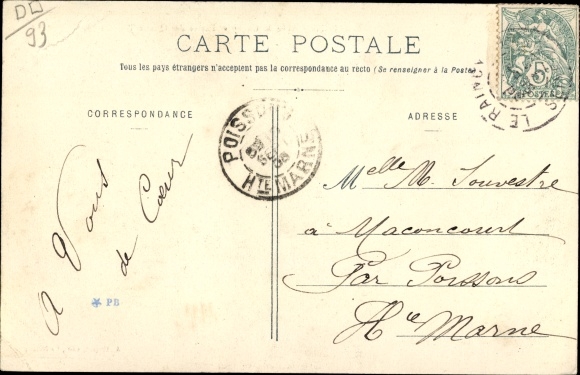 DD
93
CARTE POSTALE
Tous les pays étrangers n'acceptent pas la correspondance au recto (Se renseigner à la Poste)
CORRESPONDANCE
ADRESSE
A Vous
de Cœur
Melle M. Souvestre
à Maconcourt
Par Poissons
Hte Marne
PB
POISSONS
HTE MARNE
LE RAINCY
5
POSTES